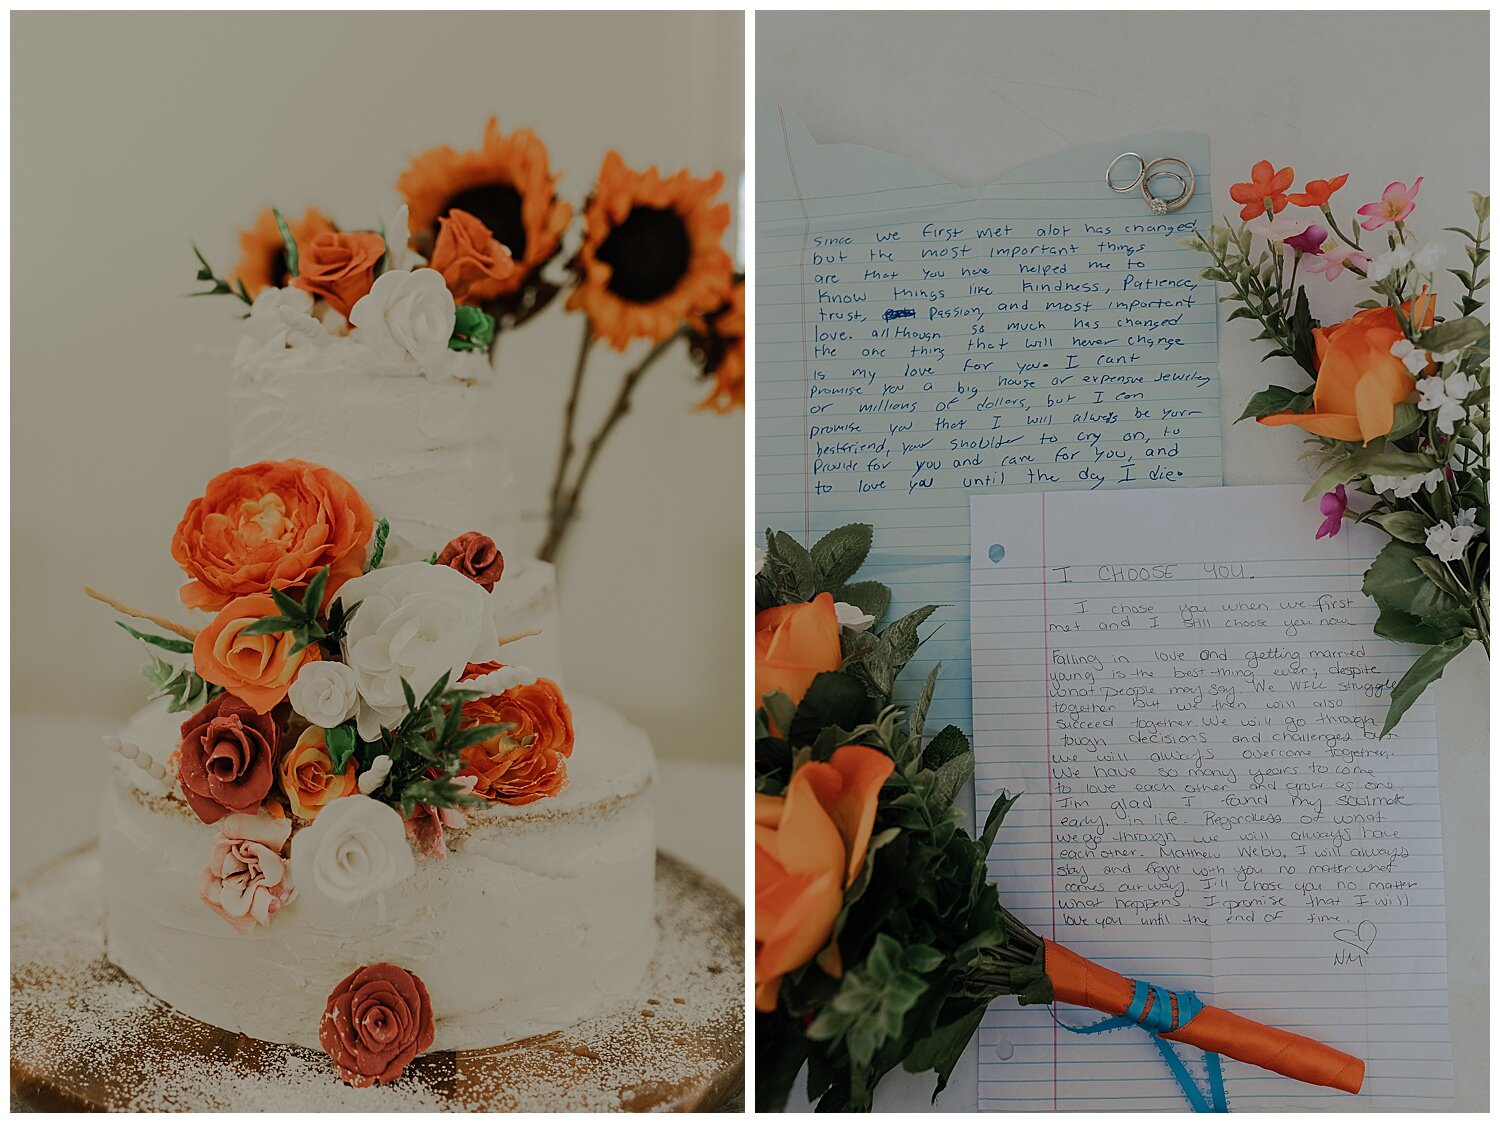 Since we first met alot has changed
but the most important things
are that you have helped me to
know things like kindness, Patience,
trust, Passion, and most important
love. allthough so much has changed
the one thing that will never change
is my love for you. I cant
promise you a big house or expensive Jewelrey
or millions of dollars, but I can
promise you that I will always be your
bestfriend, your shoulder to cry on, to
Provide for you and care for you, and
to love you until the day I die.
I CHOOSE YOU.
I chose you when we first
met and I still choose you now
Falling in love and getting married
young is the best thing ever; despite
what people may say. We WILL struggle
together but we then will also
succeed together. We will go through
tough decisions and challenges but
we will always overcome together.
We have so many years to come
to love each other and grow as one.
I'm glad I found my soulmate
early in life. Regardless of what
we go through we will always have
each other. Matthew Webb, I will always
stay and fight with you no matter what
comes our way. I'll chose you no matter
what happens. I promise that I will
love you until the end of time.
NM